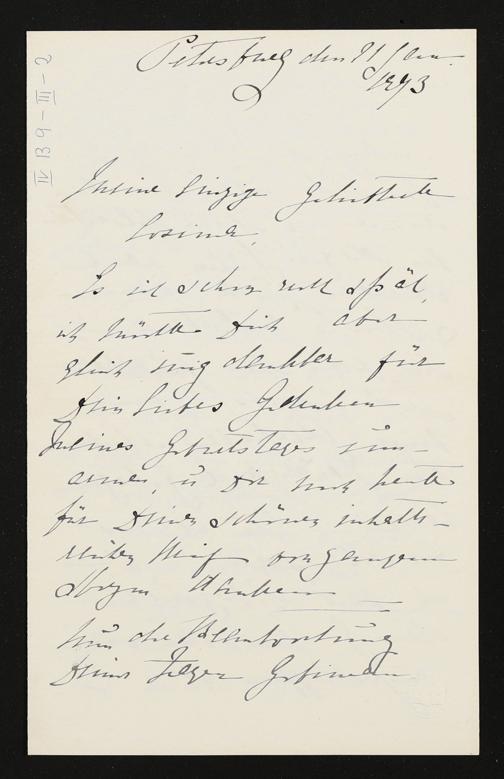 Petersburg den 21 Jan.
1893
IV B 9 - III - 2
Meine Einzige Geliebteste
Cosima,
Es ist schon recht spät,
ich möchte Dich aber
gleich innig dankbar für
Dein liebes Gedenken
Meines Geburtstages um-
armen, u Dir noch heute
für Deinen schönen inhalts-
reichen Brief von ganzem
Herzen danken
Nun die Beantwortung
Deiner